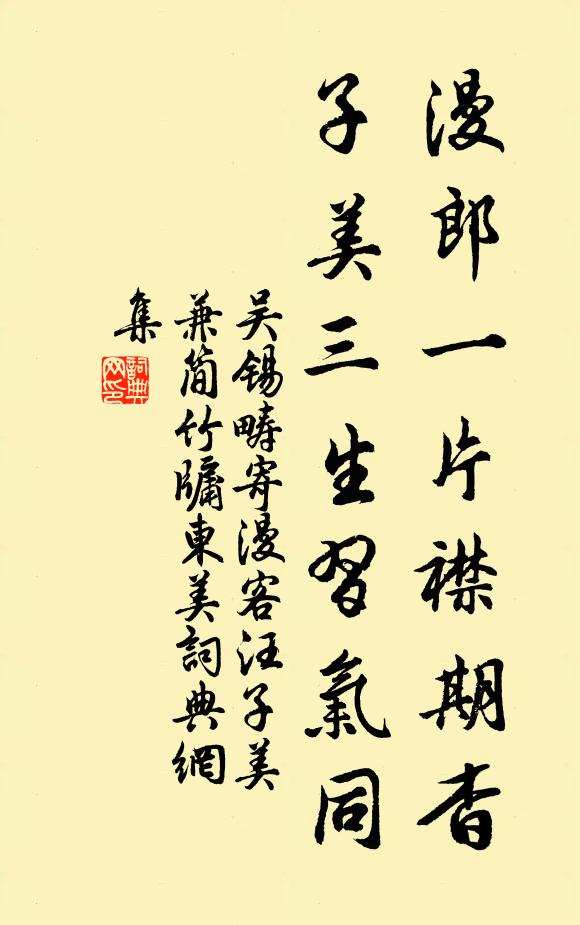 漫郎一片襟期杳
子美三生習氣同
吴锡畴寄漫客汪子美
兼简竹牖東美詞典網
集
詞典网印